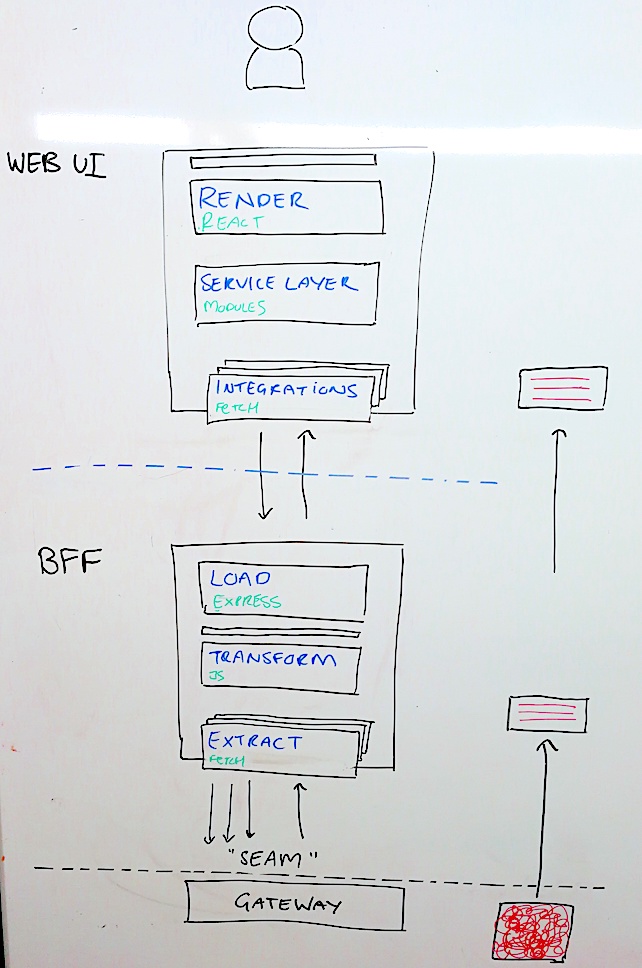 WEB UI
RENDER
REACT
SERVICE LAYER
MODULES
INTEGRATIONS
FETCH
BFF
LOAD
EXPRESS
TRANSFORM
JS
EXTRACT
FETCH
"SEAM"
GATEWAY